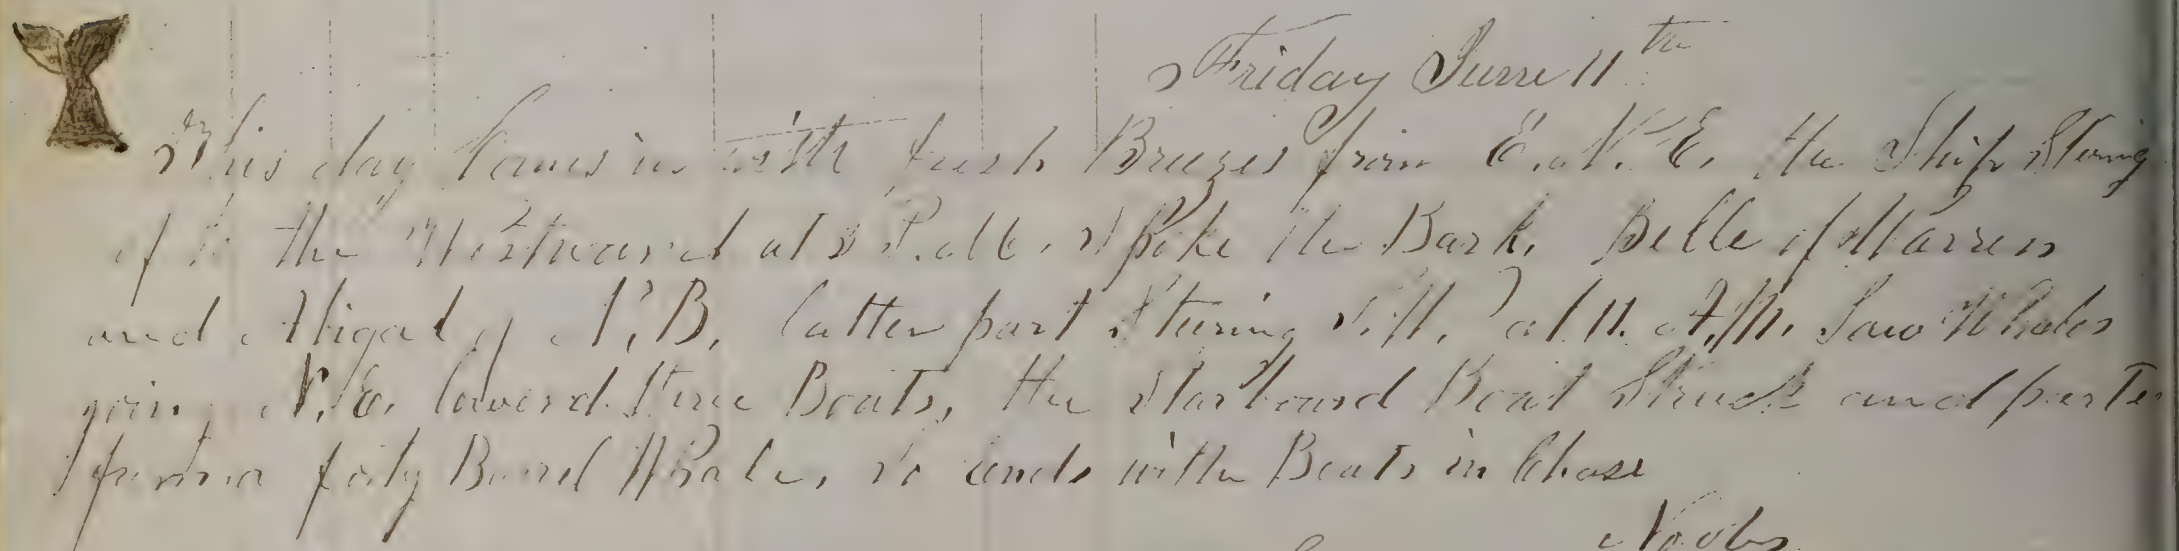 Friday June 11th
This day Comes in with fresh Breezes from E.N.E. the Ship Stering
of to the Westward at P.M. Spoke the Bark Belle of Warren
and Abigal of N.B. latter part Stering at 11. A.M. Saw Whales
going N.E. lowerd three Boats, the Starboard Boat Struck and parte
from a forty Barrel Whale, so ends with Boats in Chase